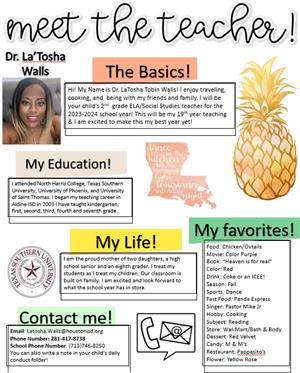 meet the teacher!
Dr. La'Tosha
Walls
The Basics!
Hi! My Name is Dr. LaTosha Tobin Walls! I enjoy traveling,
cooking, and being with my friends and family. I will be
your child's 2nd grade ELA/Social Studies teacher for the
2023-2024 school year! This will be my 19th year teaching
& I am excited to make this my best year yet!
My Education!
I attended North Harris College, Texas Southern
University, University of Phoenix, and University
of Saint Thomas. I began my teaching career in
Aldine ISD in 2003 I have taught kindergarten,
first, second, third, fourth and seventh grade.
dance
in the
kitchen
till the
morning
light
louisiana
saturday
night
My Life!
I am the proud mother of two daughters, a high
school senior and an eighth grader. I treat my
students as I treat my children. Our classroom is
built on family. I am excited and look forward to
what the school year has in store.
TEXAS SOUTHERN UNIVERSITY
My favorites!
Food: Chicken/Oxtails
Movie: Color Purple
Book: "Heaven is for real"
Color: Red
Drink: Coke or an ICEE!
Season: Fall
Sports: Dance
Fast Food: Panda Express
Singer: Pastor Mike Jr
Hobby: Cooking
Subject: Reading
Store: Wal-Mart/Bath & Body
Dessert: Red Velvet
Candy: M & M's
Restaurant: Pappasito's
Flower: Yellow Rose
Contact me!
Email: Latosha.Walls@houstonisd.org
Phone Number: 281-417-8738
School Number: (713)746-8250
You can also write a note in your child's daily
conduct folder!